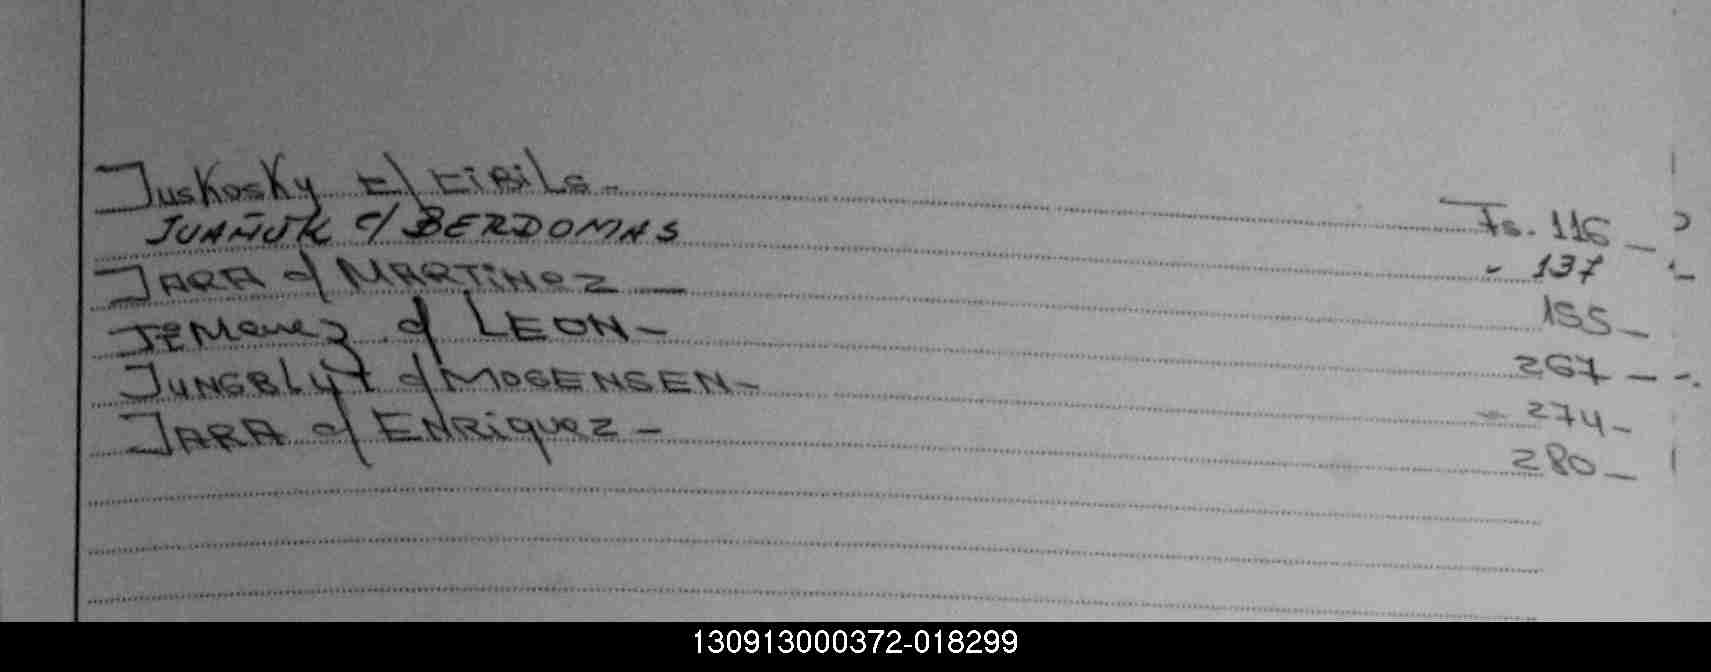 Juskosky c/ Cibils - Fs. 116 -
JUAÑUK c/ BERDOMAS " 137
JARA c/ MARTiNez - 155 -
JiMenez c/ LEON - 267 -
JUNGBLYT c/ MOGENSEN - 274 -
JARA c/ ENRiquez - 280 -
130913000372-018299